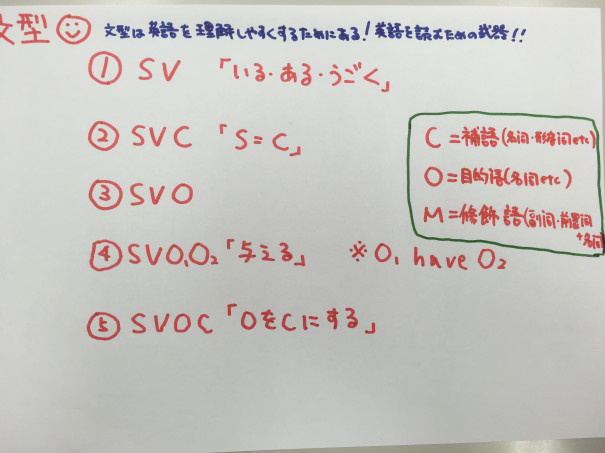 文型☺ 文型は英語を理解しやすくするためにある!英語を読むための武器!!
① SV 「いる・ある・うごく」
② SVC 「S=C」
③ SVO
④ SVO₁O₂「与える」 ※O₁ have O₂
⑤ SVOC「OをCにする」
C=補語(名詞・形容詞etc)
O=目的語(名詞etc)
M=修飾語(副詞・前置詞
+名詞)